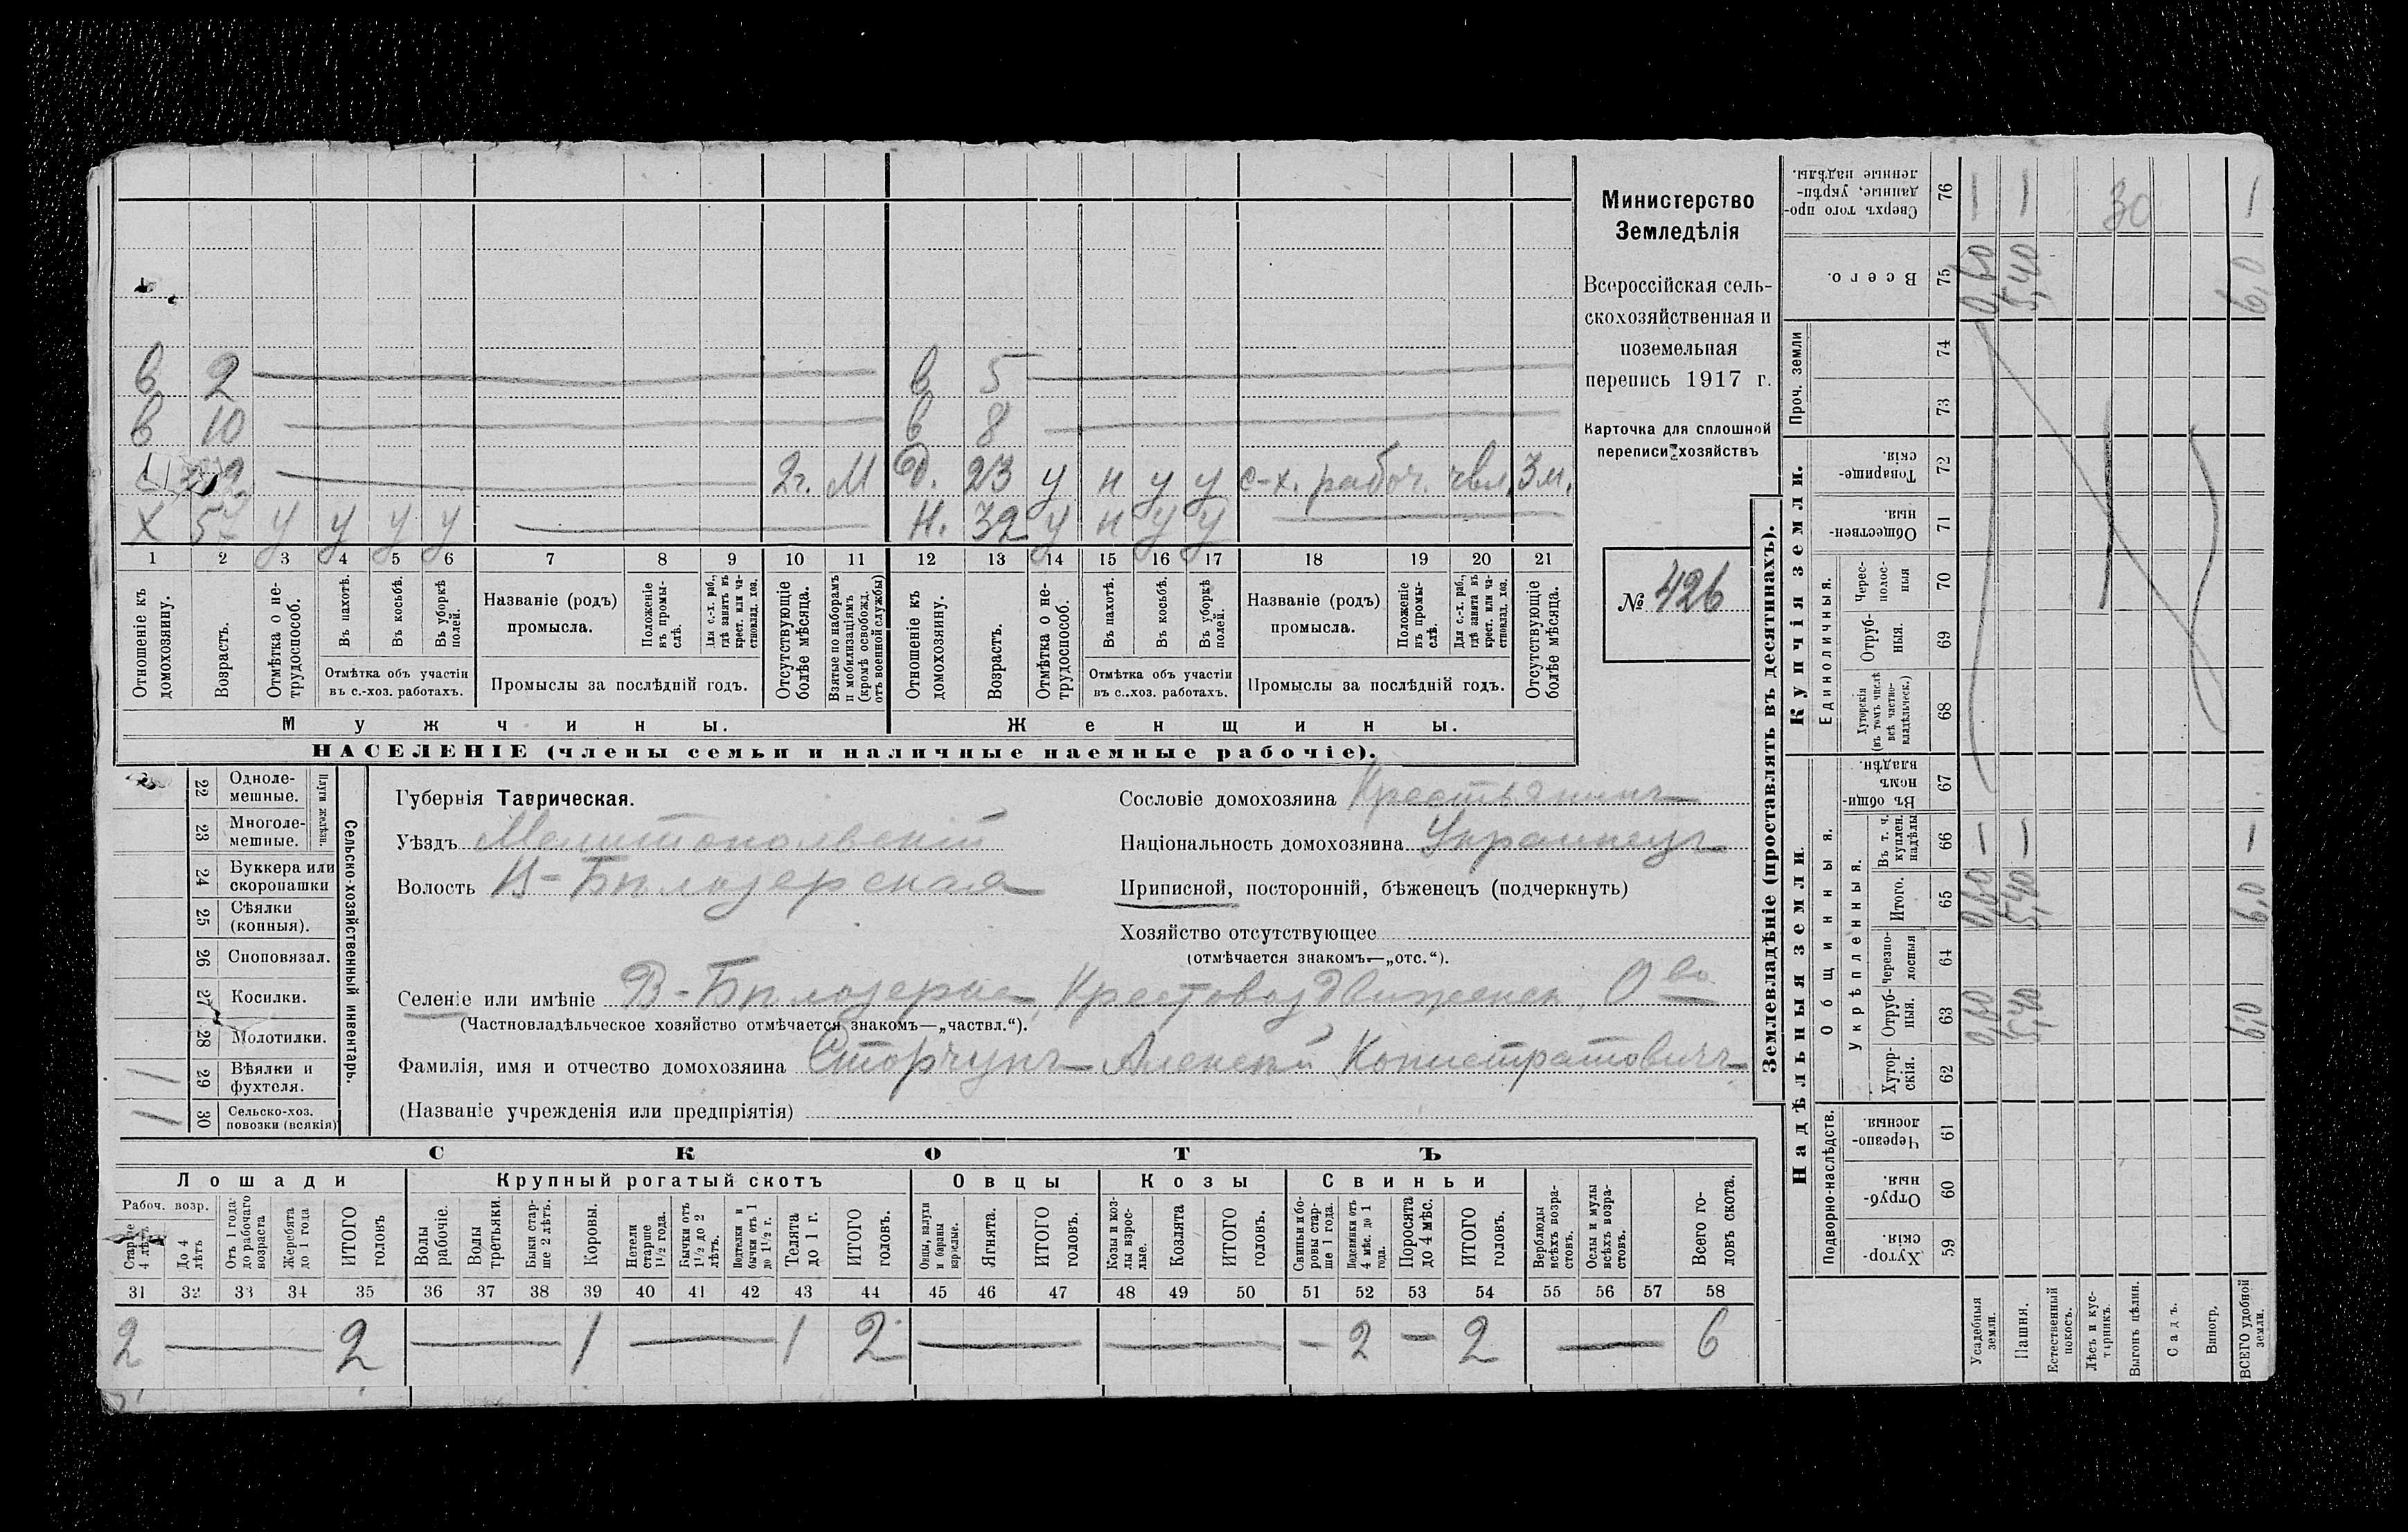 в 2 — в 5 —
в 10 — в 8 —
— 2г. М д. 23 у н у у с-х. рабоч. чвл. 3 м.
х у у у у — н. 32 у н у у —
1 2 3 4 5 6 7 8 9 10 11 12 13 14 15 16 17 18 19 20 21
Отношеніе къ домохозяину.
Возрастъ.
Отмѣтка о нетрудоспособ.
Въ пахотѣ.
Въ косьбѣ.
Въ уборкѣ полей.
Отмѣтка объ участіи въ с.-хоз. работахъ.
Названіе (родъ) промысла.
Положеніе въ промыслѣ.
Для с.-х. раб., гдѣ занятъ въ крест. или частновлад. хоз.
Промыслы за послѣдній годъ.
Отсутствующіе болѣе мѣсяца.
Взятые по наборамъ и мобилизаціямъ (кромѣ освобожд. отъ военной службы)
Отношеніе къ домохозяину.
Возрастъ.
Отмѣтка о нетрудоспособ.
Въ пахотѣ.
Въ косьбѣ.
Въ уборкѣ полей.
Отмѣтка объ участіи въ с.-хоз. работахъ.
Названіе (родъ) промысла.
Положеніе въ промыслѣ.
Для с.-х. раб., гдѣ занята въ крест. или частновлад. хоз.
Промыслы за послѣдній годъ.
Отсутствующіе болѣе мѣсяца.
Мужчины.
Женщины.
НАСЕЛЕНІЕ (члены семьи и наличные наемные рабочіе).
Министерство
Земледѣлія
Всероссійская сель-
скохозяйственная и
поземельная
перепись 1917 г.
Карточка для сплошной
переписи хозяйствъ
№ 426
22 Одноле-
мешные.
23 Многоле-
мешные.
Плуги желѣзн.
24 Буккера или
скоропашки
25 Сѣялки
(конныя).
26 Сноповязал.
27 Косилки.
28 Молотилки.
1 29 Вѣялки и
фухтеля.
1 30 Сельско-хоз.
повозки (всякія)
Сельско-хозяйственный инвентарь.
Губернія Таврическая.
Уѣздъ Мелитопольскій
Волость В-Бѣлозерская
Сословіе домохозяина Крестьянинъ
Національность домохозяина Украинецъ
Приписной, посторонній, бѣженецъ (подчеркнуть)
Хозяйство отсутствующее
(отмѣчается знакомъ—„отс.“).
Селеніе или имѣніе В-Бѣлозерка, Крестовоздвиженск. О во
(Частновладѣльческое хозяйство отмѣчается знакомъ—„частвл.“).
Фамилія, имя и отчество домохозяина Сторчунъ Алексѣй Копистратовичъ
(Названіе учрежденія или предпріятія)
СКОТЪ
Лошади
Крупный рогатый скотъ
Овцы
Козы
Свиньи
Рабоч. возр.
Старше 4 лѣтъ
До 4 лѣтъ
Отъ 1 года до рабочаго возраста
Жеребята до 1 года
ИТОГО головъ
Волы рабочіе.
Волы третьяки.
Быки старше 2 лѣтъ.
Коровы.
Нетели старше 1½ года.
Бычки отъ 1½ до 2 лѣтъ.
Подтелки и бычки отъ 1 до 1½ г.
Телята до 1 г.
ИТОГО головъ.
Овцы, валухи и бараны взрослые.
Ягнята.
ИТОГО головъ.
Козы и козлы взрослые.
Козлята
ИТОГО головъ.
Свиньи и боровы старше 1 года.
Подсвинки отъ 4 мѣс. до 1 года.
Поросята до 4 мѣс.
ИТОГО головъ.
Верблюды всѣхъ возрастовъ.
Ослы и мулы всѣхъ возрастовъ.
Всего головъ скота.
31 32 33 34 35 36 37 38 39 40 41 42 43 44 45 46 47 48 49 50 51 52 53 54 55 56 57 58
2 — 2 — 1 — 1 2 — — — 2 — 2 — 6
Землевладѣніе (проставлять въ десятинахъ).
Надѣльныя земли.
Купчія земли.
Проч. земли
Подворно-наслѣдств.
Общинныя.
Укрѣпленныя.
Единоличныя.
Хуторскія. 59
Отрубныя. 60
Черезполосныя 61
Хуторскія. 62
Отрубныя. 63 0,60 5,40 6,0
Черезполосныя 64
Итого. 65 0,60 5,40 6,0
Въ т. ч. куплен. надѣлы 66 — — —
Въ общинномъ владѣн. 67
Хуторскія (въ томъ числѣ всѣ частновладѣльческ.) 68
Отрубныя. 69
Чересполосныя 70
Общественныя. 71
Товарищескія. 72
73
74
Всего. 75 0,60 5,40 6,0
Сверхъ того проданные, укрѣпленные надѣлы. 76 — — 30 —
Усадебныя земли.
Пашня.
Естественный покосъ.
Лѣсъ и кустарникъ.
Выгонъ цѣлин.
Садъ.
Виногр.
ВСЕГО удобной земли.